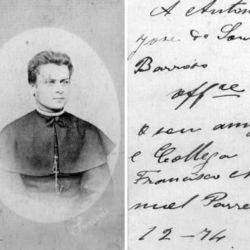 A Anton
Jose de Sou
Barroso
offre
o seu am
e Collega
Francisco
nuel Parre
12-74